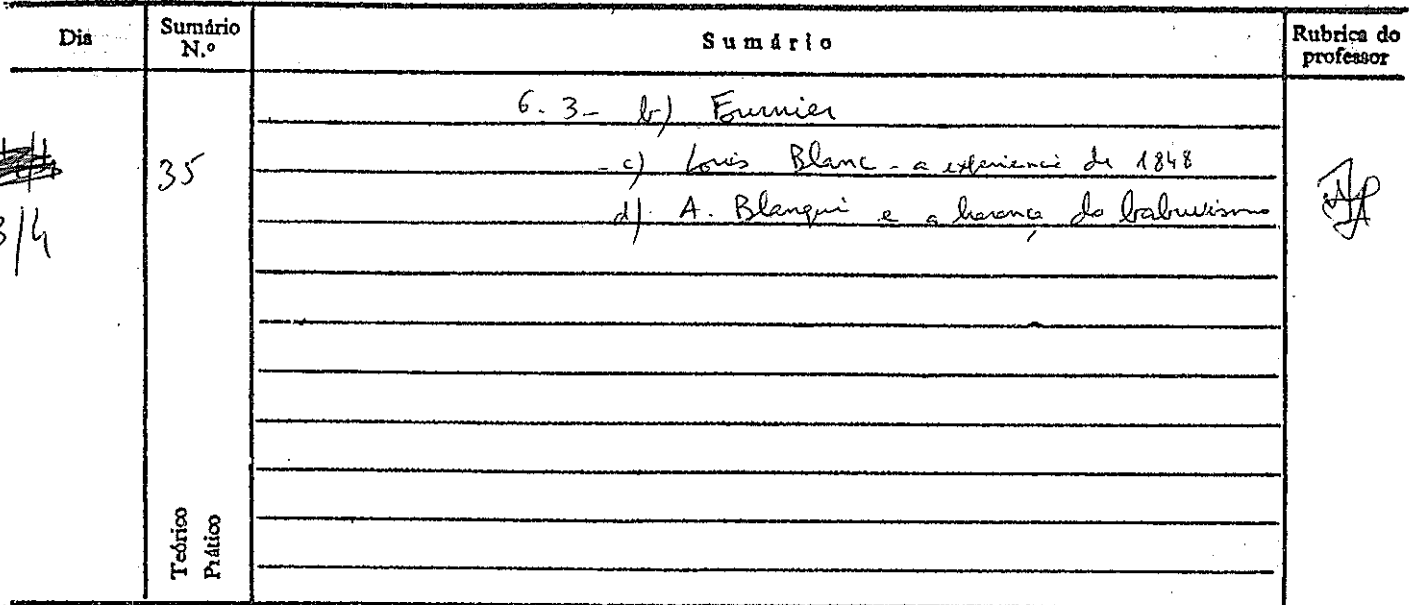 Dia
Sumário N.º
Sumário
Rubrica do professor
6.3- b) Fourier
35
- c) Louis Blanc - a experiencia de 1848
3/4
d) A. Blanqui e a herança do babuvismo
Teórico
Prático